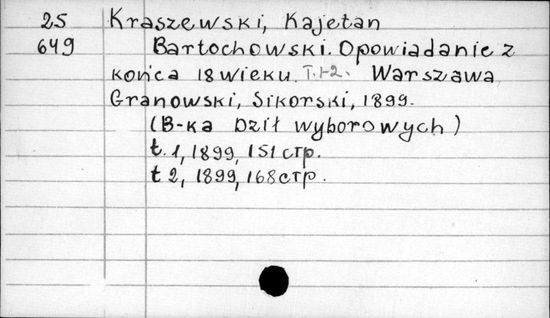 25 Kraszewski, Kajetan
649 Bartochowski. Opowiadanie z
końca 18 wieku. T.1-2. Warszawa
Granowski, Sikorski, 1899.
(B-ka Dził wyborowych)
t. 1, 1899, 151 стр.
t 2, 1899, 168 стр.